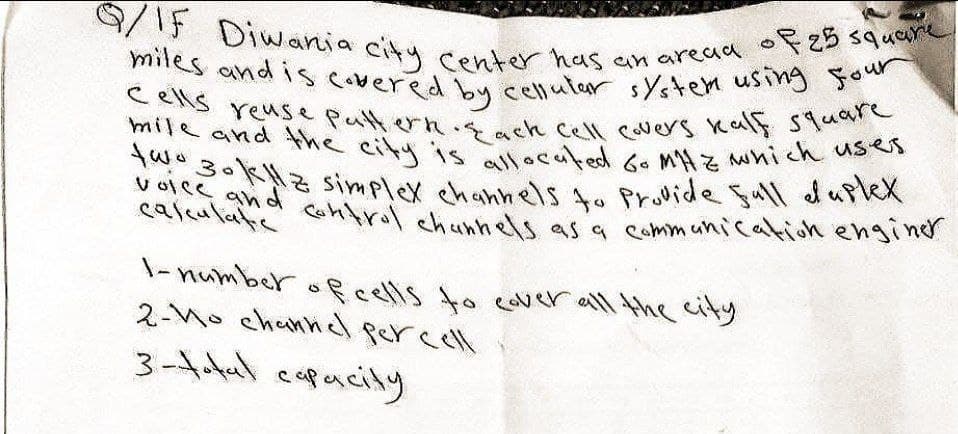 Q/ IF Diwania city center has an areaa of 25 square
miles and is covered by cellular system using four
cells reuse pattern. Each cell covers half square
mile and the city is allocated 60 MHz which uses
two 30kHz simplex channels to provide full duplex
voice and control channels as a communication enginer
calculate
1- number of cells to cover all the city
2- No channel per cell
3- total capacity